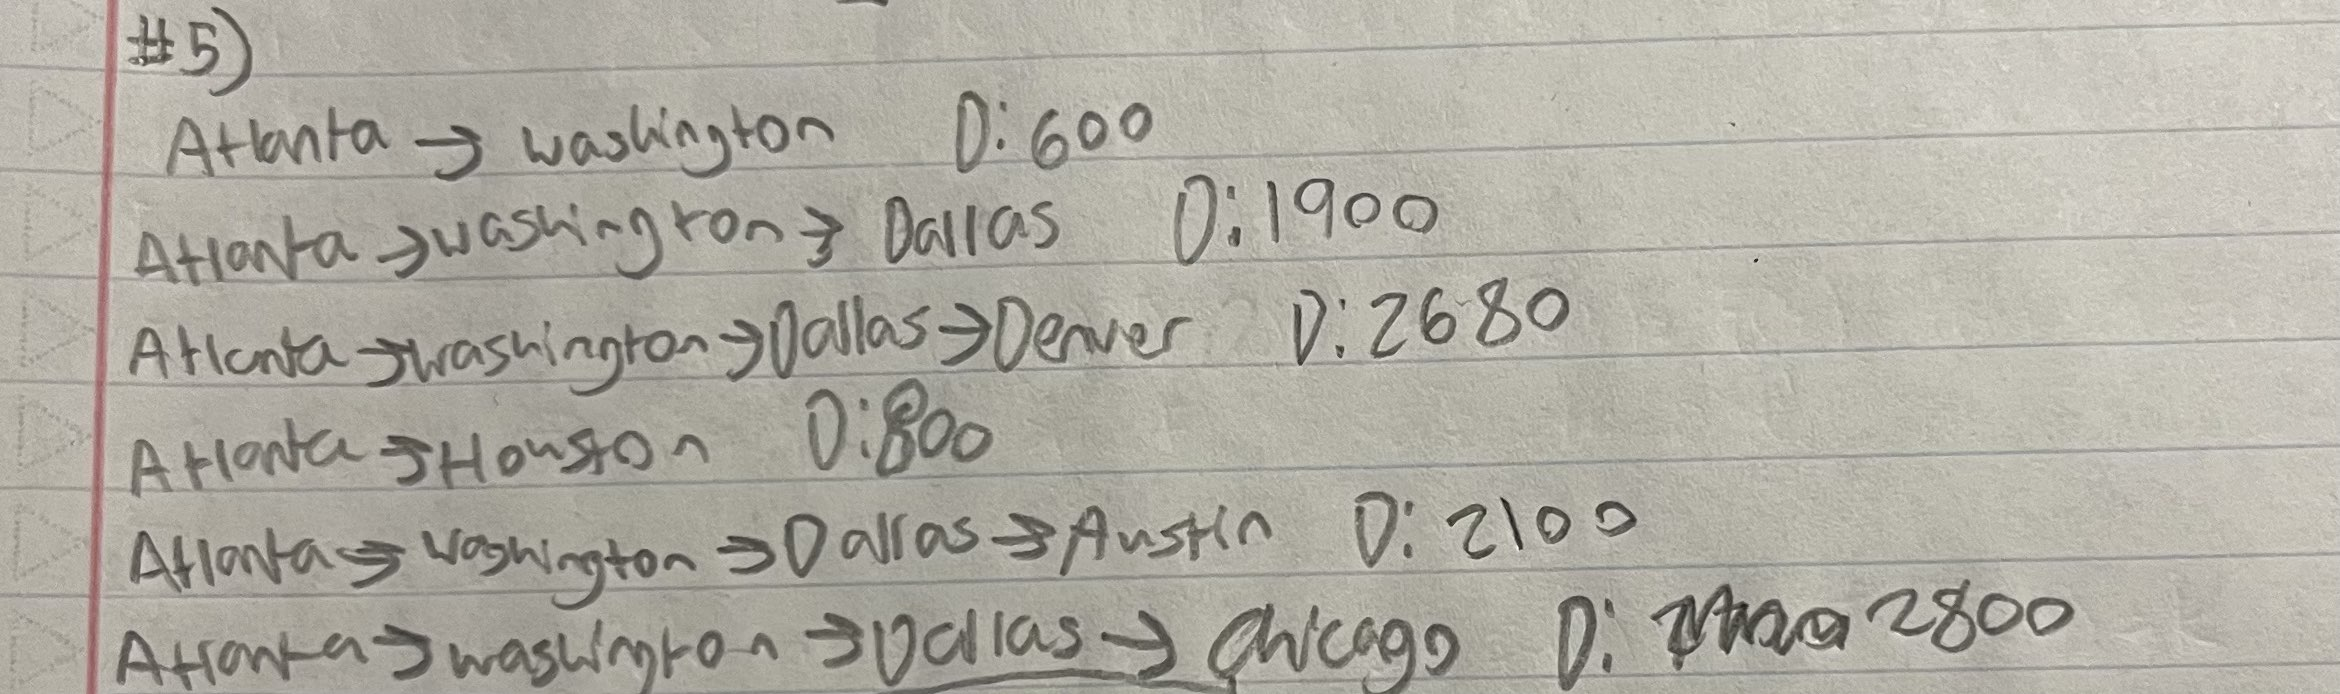 #5)
Atlanta → washington D: 600
Atlanta → washington → Dallas D: 1900
Atlanta → washington → Dallas → Denver D: 2680
Atlanta → Houston D: 800
Atlanta → washington → Dallas → Austin D: 2100
Atlanta → washington → Dallas → Chicago D: 2800